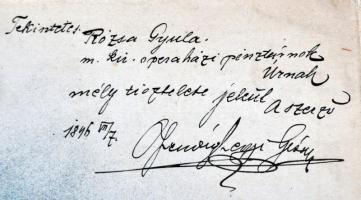 Tekintetes Rózsa Gyula.
m. kir. operaházi pénztárnok
Úrnak
mély tisztelete jeléül
A szerző
1896 VII/7